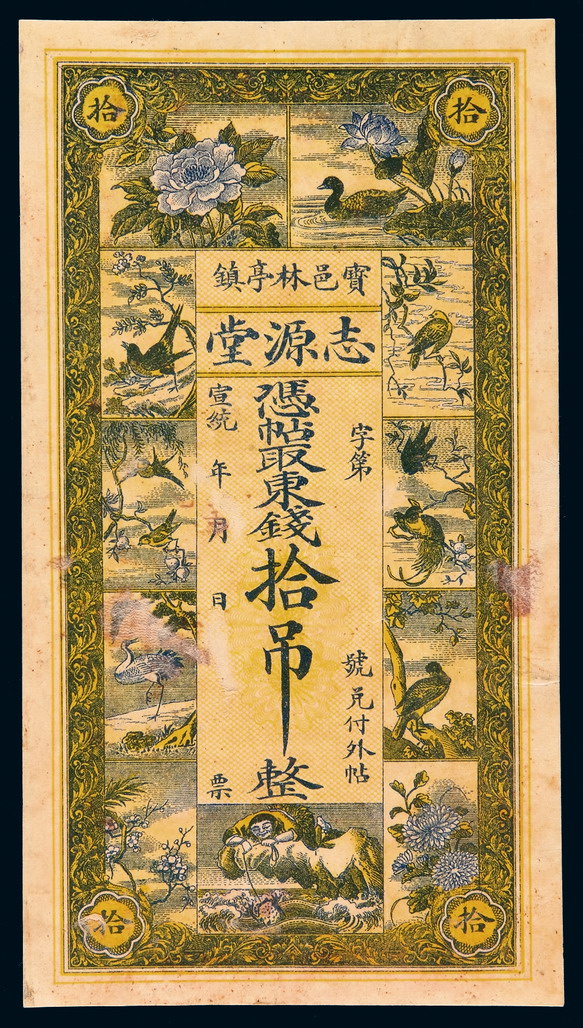 拾
拾
寶邑林亭鎮
志源堂
字第
號兌付外帖
憑帖取東錢拾吊整
宣統 年 月 日 票
拾
拾